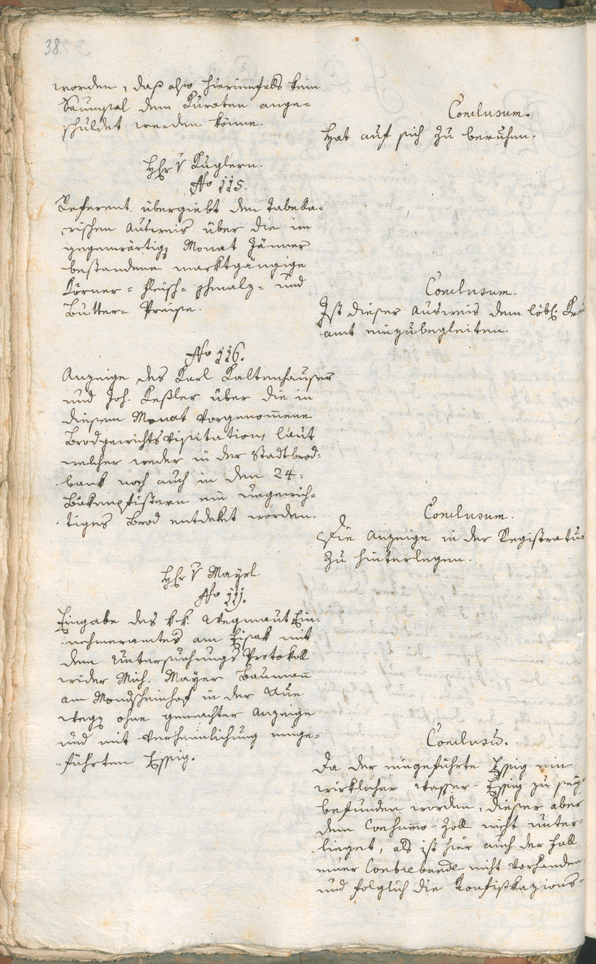 38
worden, daß also hierinnfalls kein
Saumsal dem Kuraten ange-
schuldet werden könne.
Conclusum.
Hat auf sich zu beruhen.
Hhr v Kuglern.
No 115.
Referent übergiebt den Tabella-
rischen Ausweis über die im
gegenwärtig Monat Jänner
bestandene marktgängige
Körner- Fleisch- schmalz- und
Butter- Preise.
Conclusum.
Ist dieser Ausweis dem löbl: Krei
amt einzubegleiten.
No 116.
Anzeige des Karl Kaltenhauser
und Joh. Keßler über die in
diesem Monat vorgenommene
Brodgewichtsvisitation, laut
welcher weder in der Stadtbrod-
bank noch auch in den 24.
Bäkenpfistern ein ungewich-
tiges Brod entdekt worden.
Conclusum.
Die Anzeige in der Registratur
zu hinterlegen.
Hhr v Mayrl
No 111.
Eingabe des k.k. Wegmaut Ein-
nehmeramtes am Eisak mit
dem Untersuchungs Protokoll
wider Mich. Mayer Baumann
am Mondscheinhof in der Aue
wegen ohne gemachter Anzeige
und mit Verheimlichung einge-
führten Essig.
Conclusū.
Da der eingeführte Essig ein
wirklicher Wasser-Essig zu seyn
befunden worden, dieser aber
dem Consumo Zoll nicht unter-
lieget, als ist hier auch der Fall
einer Contrebande nicht vorhanden
und folglich die Konfiskazions-